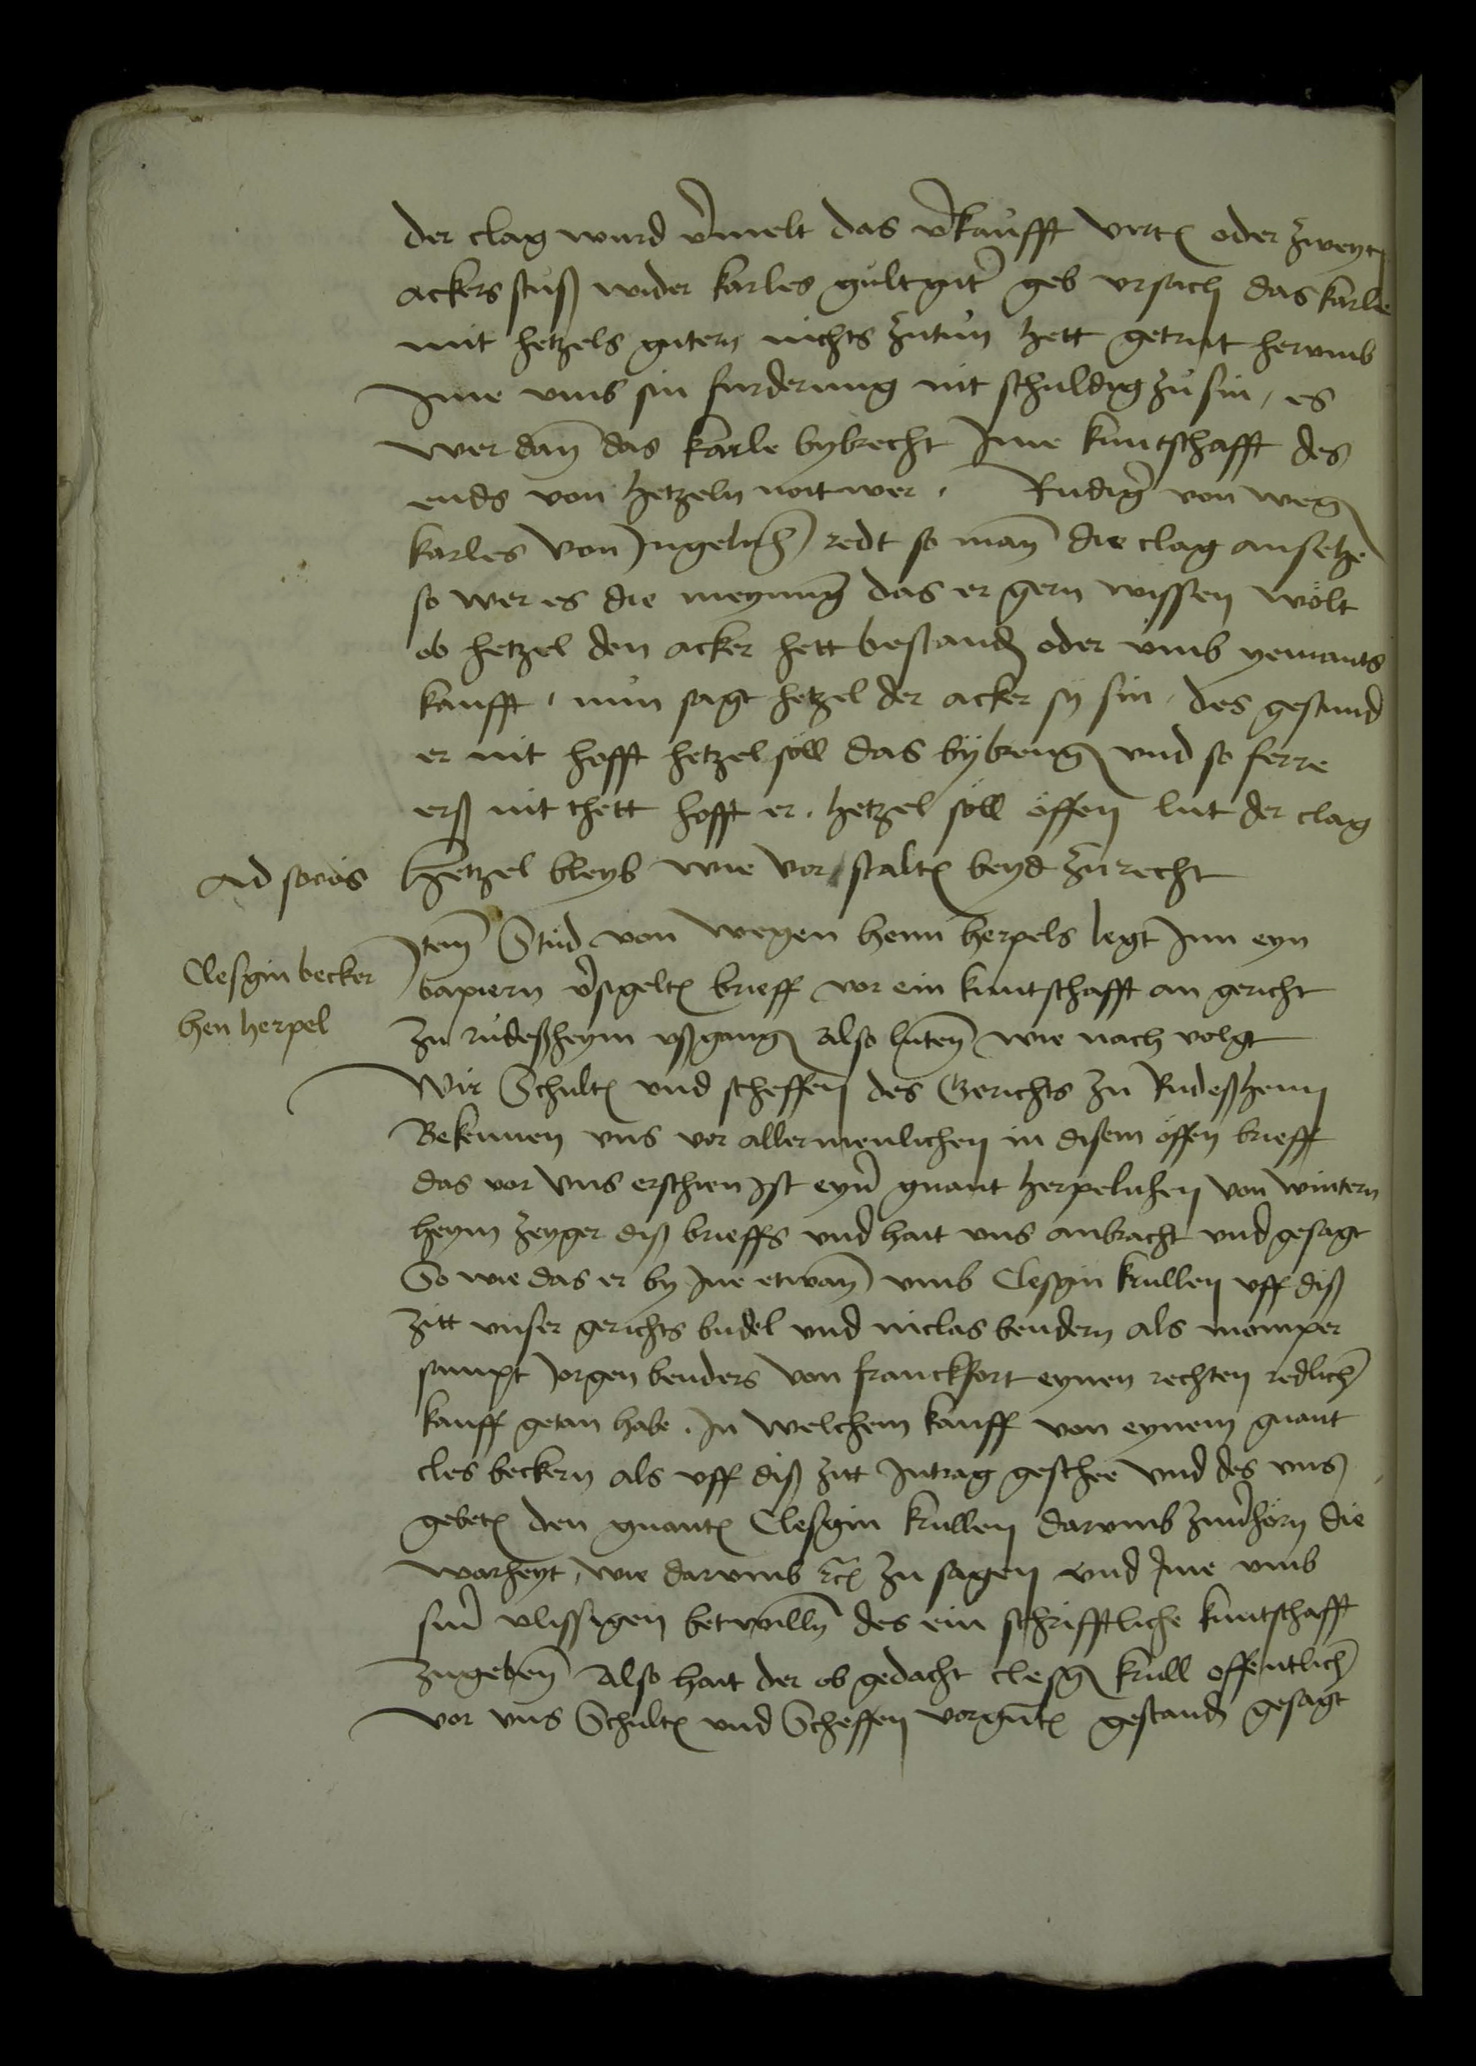 der clag wurd v̾melt das v̾kaufft virtz oder zweytz
ackers stuß wider karles gultgut̾ geb vrsach das karle
mit hetzels gutern nichts zutun hett getrut herumb
Jme vmb sin furderung nit schuldig zu sin, es
wer dan̅ das karle bybrecht Jme kuntschafft des
ends von hetzeln noit wer. Rudig̾ von weg
karles von Jngelnh̾ redt so man̅ die clag ansetze
so wer es die meynung das er gern wissen wolt
ob hetzel den acker hett bestand oder vmb yemants
kaufft. nun sagt hetzel der acker sy sin. des gestund
er nit hofft hetzel soll das bybreng vnd so ferre
erß nit thett hofft er. hetzel soll offen lut der clag
Ad socios
Hetzel bleyb wie vor staltz beyd zu recht
Jtem Stud von wegen henn herpels legt Jnn eyn
Clesgin becker
bapiern v̾sigeltz brieff vor ein kuntschafft an gericht
hen herpel
zu rudeßheym vßgang also luten̅ wie nach volgt
Wir Schultz vnd scheffen des Gerichts zu Rudeßheim
Bekennen vns vor allermenlichen in disem offen brieff
das vor vns erschien ist eyn̾ gnant herpelnhen von wintern
heym zeyger diß brieffs vnd hait vns anbracht vnd gesagt
So wie das er by Jne etwan̅ vmb Clesgin krullen vff diß
zitt vnser gerichts budel vnd niclas bendern als momper
sampt Jorgen benders von franckfort eynen rechten redlich̾
kauff getan habe. Jn welchem kauff von eynem gnant
cles beckern als vff diß zitt Jntrag geschee vnd des vns
gebetz den gnantz Clesgin krullen darumb zuu̾horn die
warheyt, wie darumb rc̃ zu sagen vnd Jme vmb
sin̾ vlissigen betwilln des ein schrifftliche kuntschafft
zugeben̅ Also hait der ob gedacht clesg krull offentlich̾
vor vns Schultz vnd Scheffen vorgnntz gestand gesagt